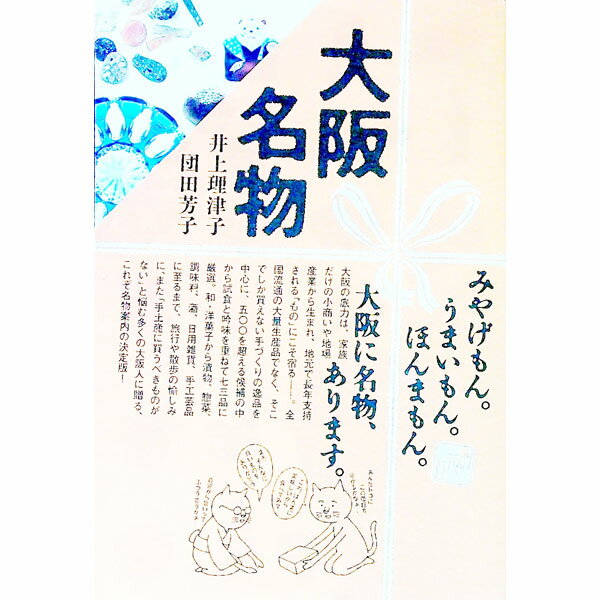 大阪
名物
井上理津子
団田芳子
みやげもん。
うまいもん。
ほんまもん。
大阪に名物、
あります。
大阪の底力は、家族
だけの小商いや地場
産業から生まれ、地元で長年支持
される「もの」にこそ宿る――。全
国流通の大量生産品でなく、そこ
でしか買えない手づくりの逸品を
中心に、五〇〇を超える候補の中
から試食と吟味を重ねて七三品に
厳選。和・洋菓子から漬物、惣菜、
調味料、酒、日用雑貨、手工芸品
に至るまで、旅行や散歩の愉しみ
に、また「手土産に買うべきものが
ない」と悩む多くの大阪人に贈る、
これぞ名物案内の決定版！